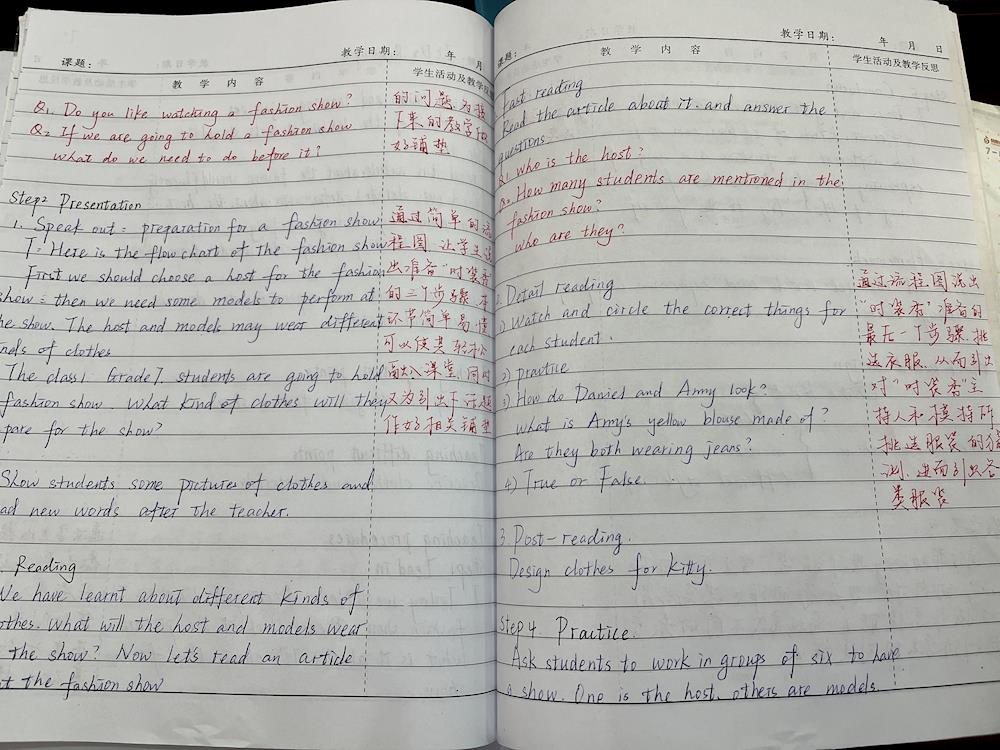 教学日期: 年 月
课题:
教 学 内 容
学生活动及教学反思
Q1. Do you like watching a fashion show?
Q2. If we are going to hold a fashion show
what do we need to do before it?
的问题为接
下来的教学做
好铺垫
Step2 Presentation
1. Speak out: preparation for a fashion show
T: Here is the flow chart of the fashion show
First we should choose a host for the fashion
show: then we need some models to perform at
he show. The host and models may wear different
nds of clothes
The class1, Grade7, students are going to hold
fashion show. What kind of clothes will they
pare for the show?
通过简单的流
程图,让学生说
出准备"时装秀"
的三个步骤.本
环节简单易懂
可以使其轻松
融入课堂,同时
又为引出下话题
作好相关铺垫
Show students some pictures of clothes and
ad new words after the teacher.
Reading
We have learnt about different kinds of
othes. What will the host and models wear
the show? Now let's read an article
t the fashion show
教学日期: 年 月 日
课题:
教 学 内 容
学生活动及教学反思
Fast reading
Read the article about it and answer the
questions.
Q1. Who is the host?
Q2. How many students are mentioned in the
fashion show?
Who are they?
2. Detail reading
1) Watch and circle the correct things for
each student.
2) practice
3) How do Daniel and Amy look?
What is Amy's yellow blouse made of?
Are they both wearing jeans?
4) True or False.
通过流程图说出
"时装秀"准备的
最后一个步骤,挑
选衣服,从而引出
对"时装秀"主
持人和模特所
挑选服装的猜
测,进而引出各
类服装
3. Post-reading.
Design clothes for Kitty.
Step 4 Practice.
Ask students to work in groups of six to have
a show. One is the host, others are models.
7-